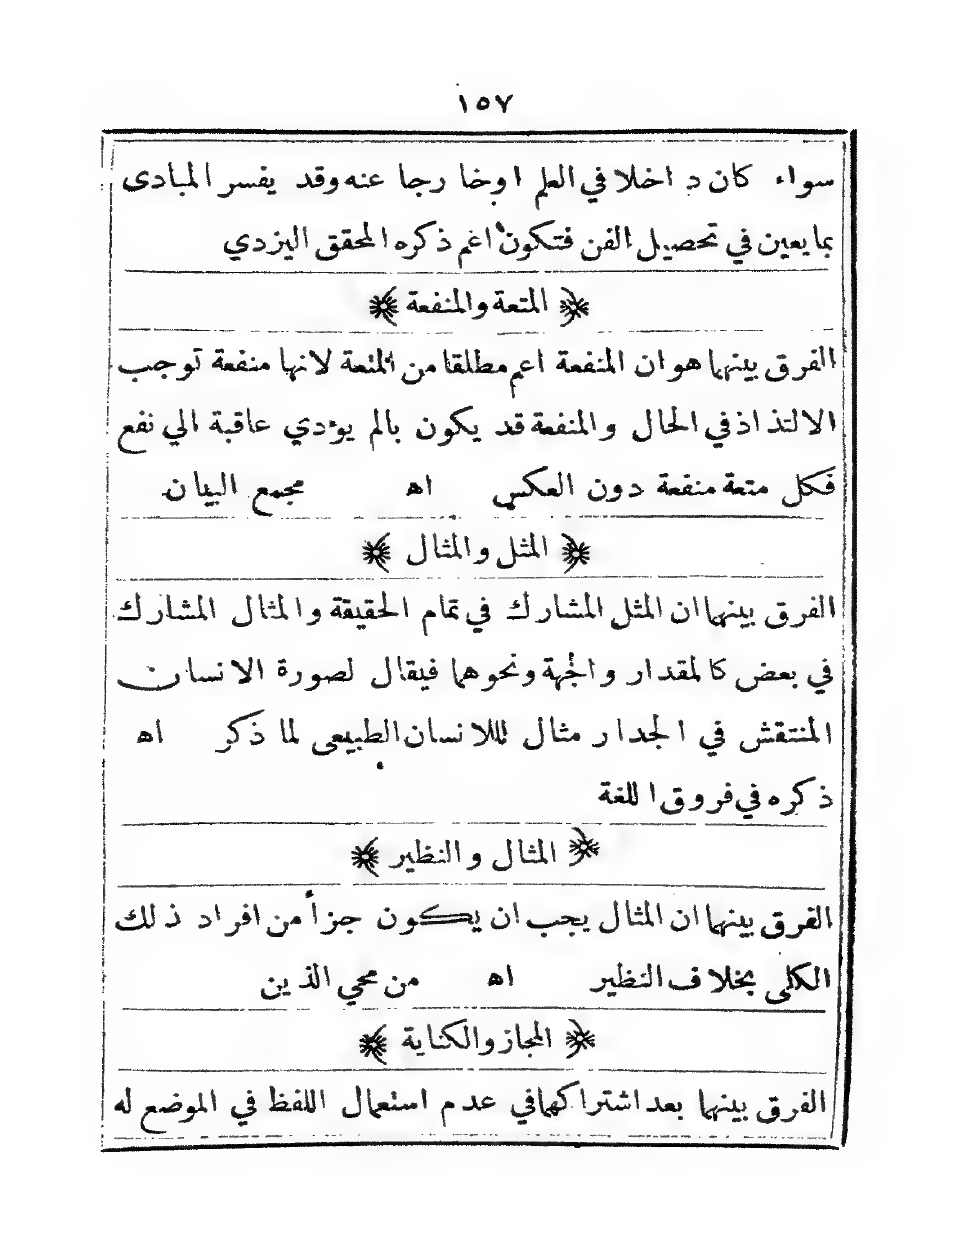 ١٥٧
سواء كان داخلا في العلم اوخارجا عنه وقد يفسر المبادى
بما يعين في تحصيل الفن فتكون اعم ذكره المحقق اليزدي
المتعة والمنفعة
الفرق بينهما هو ان المنفعة اعم مطلقا من المتعة لانها منفعة توجب
الالتذاذ في الحال والمنفعة قد يكون بالم يؤدي عاقبة الي نفع
فكل متعة منفعة دون العكس اه مجمع البيان
المثل والمثال
الفرق بينهما ان المثل المشارك في تمام الحقيقة والمثال المشارك
في بعض كالمقدار والجهة ونحوهما فيقال لصورة الانسان
المنتقش في الجدار مثال للانسان الطبيعي لما ذكر اه
ذكره في فروق اللغة
المثال والنظير
الفرق بينهما ان المثال يجب ان يكون جزأ من افراد ذلك
الكلى بخلاف النظير اه من محي الدين
المجاز والكناية
الفرق بينهما بعد اشتراكهما في عدم استعمال اللفظ في الموضع له